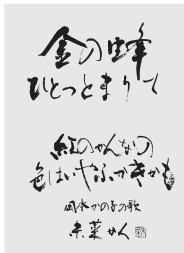 金の蜂
ひとつとまりて
紅のかんなの
色はいやふかきかも
岡本かの子の歌
菜かく